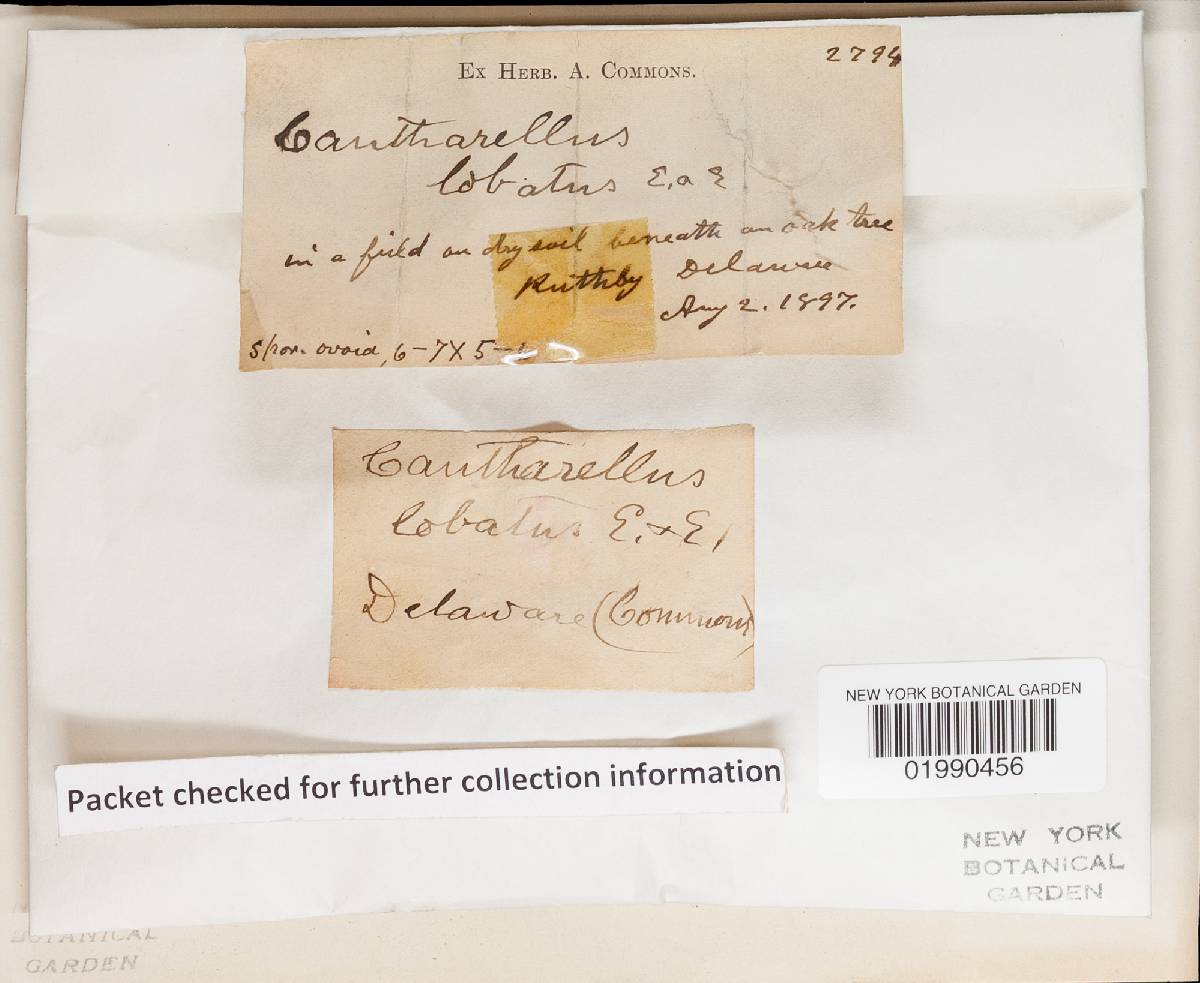 2794
Ex Herb. A. Commons.
Cantharellus
lobatus E. a E
in a field on dry soil beneath an oak tree
Ruthby Delaware
Aug 2. 1897.
Spor. ovoid, 6-7 X 5-
Cantharellus
lobatus E. & E,
Delaware (Commons)
NEW YORK BOTANICAL GARDEN
01990456
Packet checked for further collection information
NEW YORK
BOTANICAL
GARDEN
BOTANICAL
GARDEN